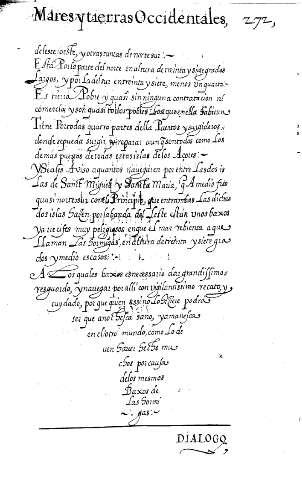 Mares y tierras Occidentales, 272,
deleste oeste, y otras tantas de norte sur.
Esta En la parte del norte en altura de treinta y siete grados
largos, y por la del sur en treinta y siete, menos un quarto.
Es tierra Pobre y quasi sin ninguna contratacion ni
comercio, y son quasi todos pobres los que en ella habitan
Tiene Por todas quatro partes della Puertos y surgideros,
donde se pueda surgir y reparar aunque son todos como los
demas puertos de todas estas islas de los Açores.
y Deseles Aviso a quantos navegaren por entre las de is
las de Sanct Miguel y Sancta Maria, q A medio freo
quasi norte sur con el Principio, que entrambas las dichas
dos islas hazen por la banda del Leste Estan unos baxos
ya tierra muy peligrosos en que el mar rebienta a que
llaman Las hormigas, en altura de treinta y siete gra
dos y medio escasos.
A Los quales baxos es menester dar grandissimo
resguardo, y navegar por alli con vigilantissimo recato, y
cuydado, por que quien assi no lo hiziere podria
ser que anochesca sano, y amanesca
en el otro mundo, como lo de
ven haver hecho mu
chos por causa
de los mesmos
Baxos de
Las hormi
gas.
DIALOGO